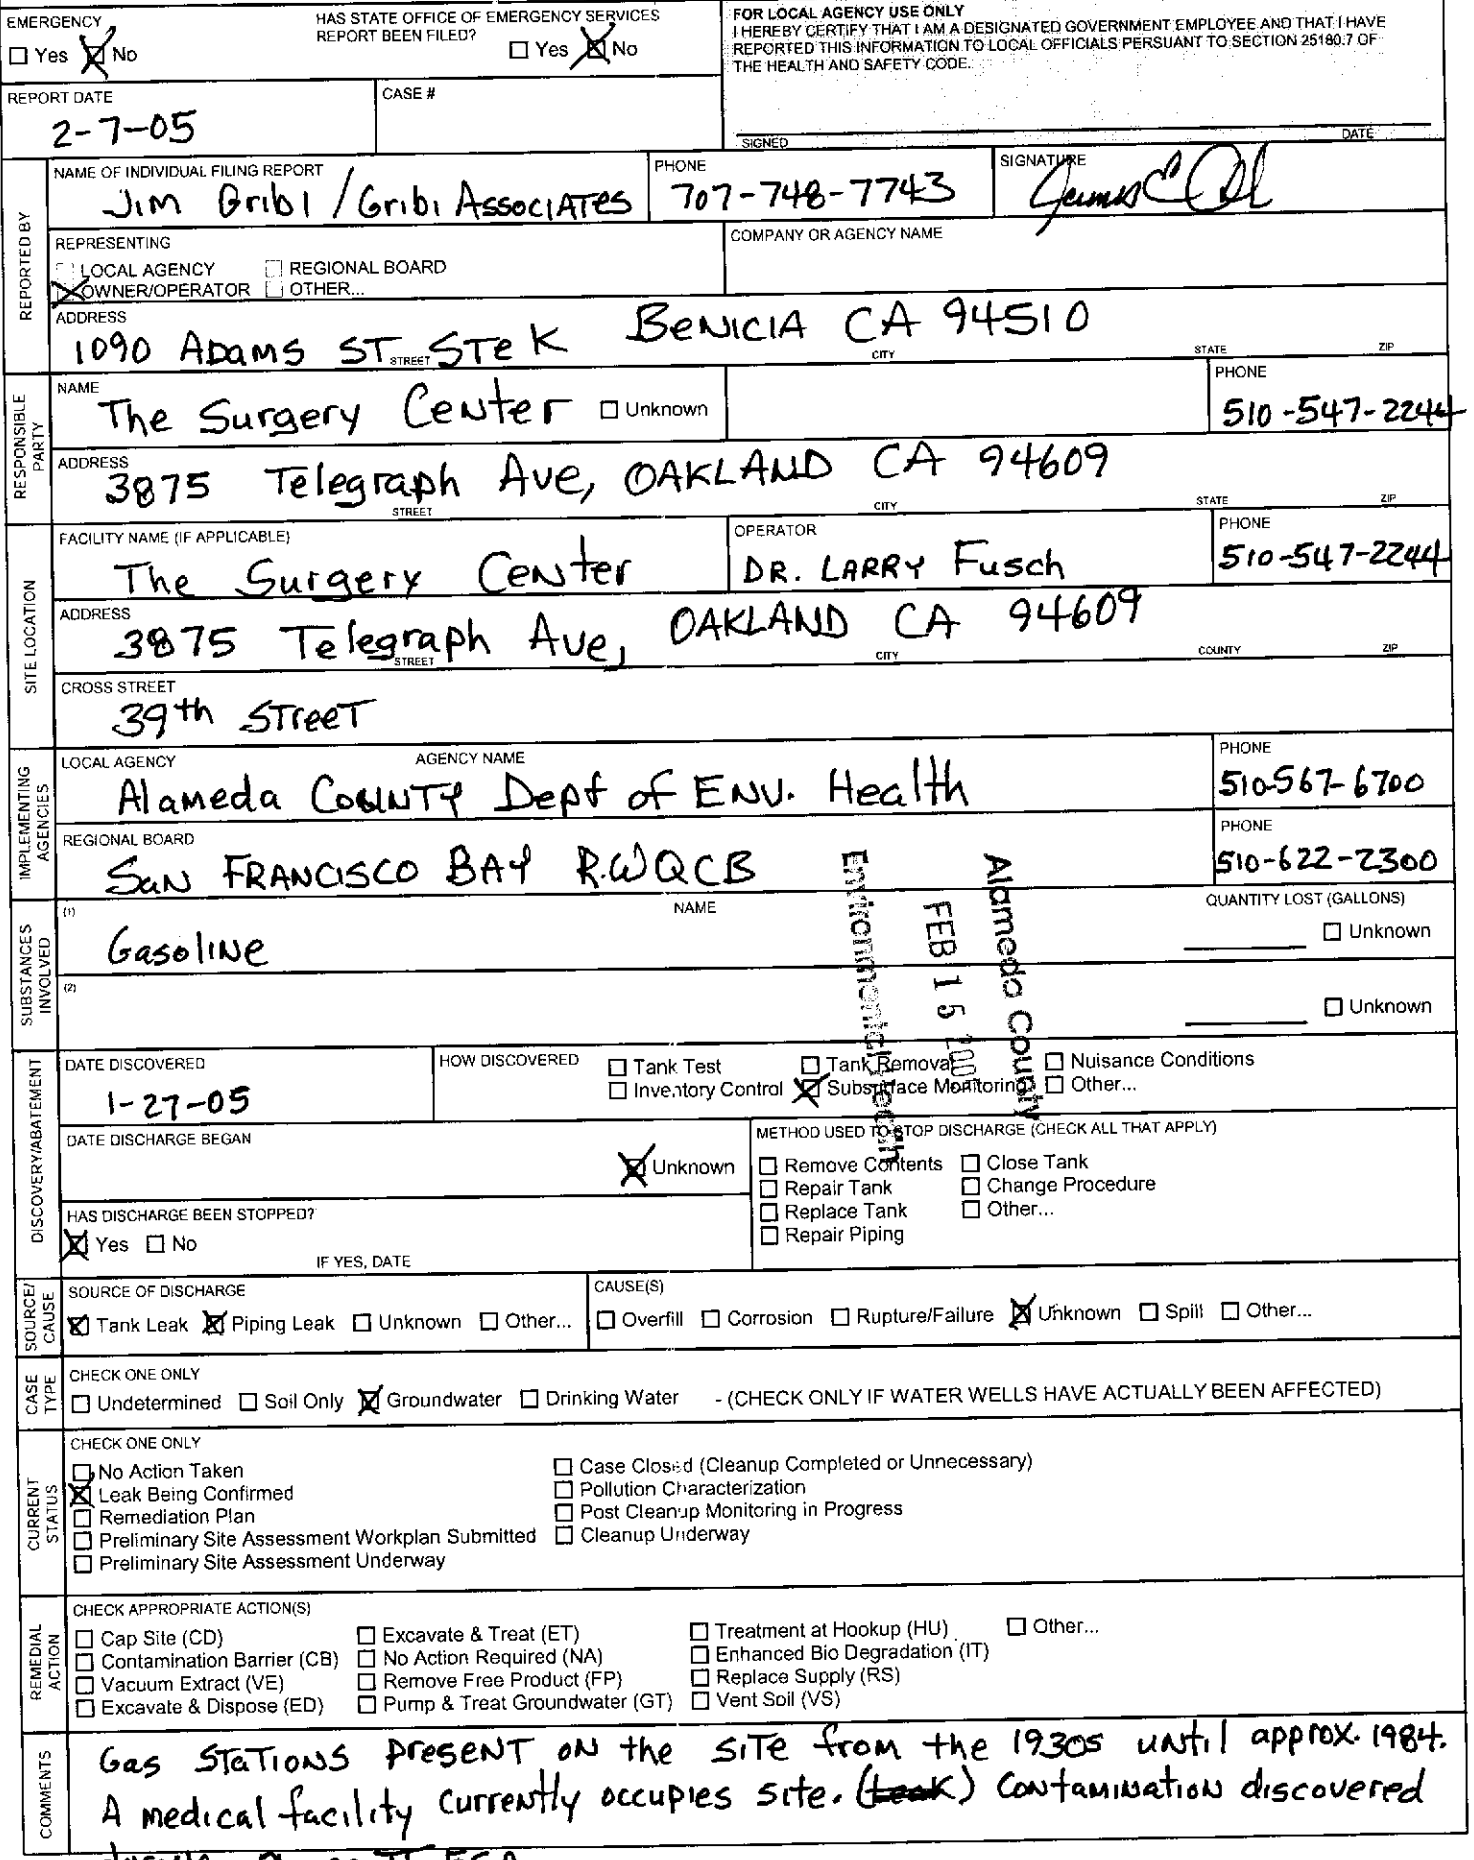 EMERGENCY
☐ Yes ☒ No
HAS STATE OFFICE OF EMERGENCY SERVICES
REPORT BEEN FILED? ☐ Yes ☒ No
FOR LOCAL AGENCY USE ONLY
I HEREBY CERTIFY THAT I AM A DESIGNATED GOVERNMENT EMPLOYEE AND THAT I HAVE
REPORTED THIS INFORMATION TO LOCAL OFFICIALS PERSUANT TO SECTION 25180.7 OF
THE HEALTH AND SAFETY CODE.
SIGNED DATE
REPORT DATE
2-7-05
CASE #
REPORTED BY
NAME OF INDIVIDUAL FILING REPORT
Jim Gribi / Gribi Associates
PHONE
707-748-7743
SIGNATURE
REPRESENTING
☐ LOCAL AGENCY ☐ REGIONAL BOARD
☒ OWNER/OPERATOR ☐ OTHER...
COMPANY OR AGENCY NAME
ADDRESS
1090 Adams ST STE K Benicia CA 94510
STREET CITY STATE ZIP
RESPONSIBLE PARTY
NAME
The Surgery Center ☐ Unknown
PHONE
510-547-2244
ADDRESS
3875 Telegraph Ave, OAKLAND CA 94609
STREET CITY STATE ZIP
SITE LOCATION
FACILITY NAME (IF APPLICABLE)
The Surgery Center
OPERATOR
DR. LARRY Fusch
PHONE
510-547-2244
ADDRESS
3875 Telegraph Ave, OAKLAND CA 94609
STREET CITY COUNTY ZIP
CROSS STREET
39th Street
IMPLEMENTING AGENCIES
LOCAL AGENCY AGENCY NAME
Alameda County Dept of Env. Health
PHONE
510-567-6700
REGIONAL BOARD
San Francisco Bay RWQCB
PHONE
510-622-2300
SUBSTANCES INVOLVED
(1) NAME QUANTITY LOST (GALLONS)
Gasoline ☐ Unknown
(2)
☐ Unknown
Alameda County
FEB 15
Environmental Health
DISCOVERY/ABATEMENT
DATE DISCOVERED
1-27-05
HOW DISCOVERED
☐ Tank Test ☐ Tank Removal ☐ Nuisance Conditions
☐ Inventory Control ☒ Subsurface Monitoring ☐ Other...
DATE DISCHARGE BEGAN
☒ Unknown
METHOD USED TO STOP DISCHARGE (CHECK ALL THAT APPLY)
☐ Remove Contents ☐ Close Tank
☐ Repair Tank ☐ Change Procedure
☐ Replace Tank ☐ Other...
☐ Repair Piping
HAS DISCHARGE BEEN STOPPED?
☒ Yes ☐ No
IF YES, DATE
SOURCE/ CAUSE
SOURCE OF DISCHARGE
☒ Tank Leak ☒ Piping Leak ☐ Unknown ☐ Other...
CAUSE(S)
☐ Overfill ☐ Corrosion ☐ Rupture/Failure ☒ Unknown ☐ Spill ☐ Other...
CASE TYPE
CHECK ONE ONLY
☐ Undetermined ☐ Soil Only ☒ Groundwater ☐ Drinking Water - (CHECK ONLY IF WATER WELLS HAVE ACTUALLY BEEN AFFECTED)
CURRENT STATUS
CHECK ONE ONLY
☐ No Action Taken ☐ Case Closed (Cleanup Completed or Unnecessary)
☒ Leak Being Confirmed ☐ Pollution Characterization
☐ Remediation Plan ☐ Post Cleanup Monitoring in Progress
☐ Preliminary Site Assessment Workplan Submitted ☐ Cleanup Underway
☐ Preliminary Site Assessment Underway
REMEDIAL ACTION
CHECK APPROPRIATE ACTION(S)
☐ Cap Site (CD) ☐ Excavate & Treat (ET) ☐ Treatment at Hookup (HU) ☐ Other...
☐ Contamination Barrier (CB) ☐ No Action Required (NA) ☐ Enhanced Bio Degradation (IT)
☐ Vacuum Extract (VE) ☐ Remove Free Product (FP) ☐ Replace Supply (RS)
☐ Excavate & Dispose (ED) ☐ Pump & Treat Groundwater (GT) ☐ Vent Soil (VS)
COMMENTS
Gas Stations present on the site from the 1930s until approx. 1984.
A medical facility currently occupies site. Contamination discovered